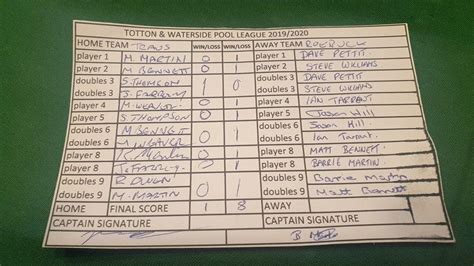 TOTTON & WATERSIDE POOL LEAGUE 2019/2020
HOME TEAM TRAVS WIN/LOSS WIN/LOSS AWAY TEAM ROEBUCK
player 1 M. MARTIN 0 1 player 1 DAVE PETTIT.
player 2 M BENNETT 0 1 player 2 STEVE WILLIAMS
doubles 3 S.THOMSON 1 0 doubles 3 DAVE PETTIT
doubles 3 J. FARROW doubles 3 STEVE WILLIAMS
player 4 M. WEAVER 0 1 player 4 IAN TARRANT
player 5 S.THOMPSON 0 1 player 5 Jason Hill
doubles 6 M BENNETT 0 1 doubles 6 Jason Hill
doubles 6 M WEAVER doubles 6 Ian Tarrant.
player 8 0 1 player 8 MATT BENNETT
player 8 0 1 player 8 BARRIE MARTIN.
doubles 9 0 1 doubles 9 Barrie Martin
doubles 9 M. MARTIN doubles 9 Matt Bennett
HOME FINAL SCORE 1 8 AWAY
CAPTAIN SIGNATURE CAPTAIN SIGNATURE